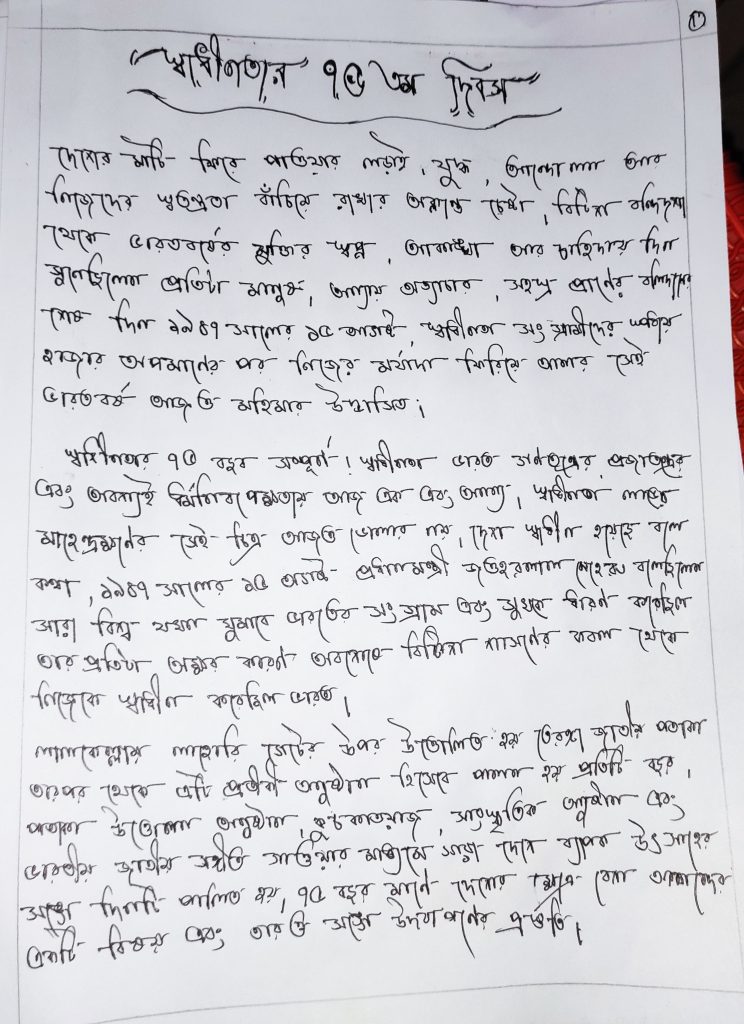 ১
"স্বাধীনতার ৭৫ তম দিবস"
দেশের মাটি ফিরে পাওয়ার লড়াই, যুদ্ধ, আন্দোলন আর
নিজেদের স্বতন্ত্রতা বাঁচিয়ে রাখার অক্লান্ত চেষ্টা, ব্রিটিশ বন্দিদশা
থেকে ভারতবর্ষের মুক্তির স্বপ্ন, আকাঙ্খা আর চাহিদায় দিন
গুনেছিলেন প্রতিটা মানুষ, অন্যায় অত্যাচার, সহস্র প্রাণের বলিদানের
শেষ দিন ১৯৪৭ সালের ১৫ আগস্ট, স্বাধীনতা সংগ্রামীদের
হাজার অপমানের পর নিজের মর্যাদা ফিরিয়ে আনার সেই
ভারতবর্ষ আজও মহিমায় উদ্ভাসিত।
স্বাধীনতার ৭৫ বছর সম্পূর্ণ! স্বাধীনতা ভারত গনতন্ত্রের, প্রজাতন্ত্রের
এবং অবশ্যই ধর্মনিরপেক্ষতায় আজ এক এবং অনন্য, স্বাধীনতা লাভের
মাহেন্দ্রক্ষণের সেই চিত্র আজও ভোলার নয়, দেশ স্বাধীন হয়েছে বলে
কথা, ১৯৪৭ সালের ১৫ অগস্ট প্রধানমন্ত্রী জওহরলাল নেহেরু বলেছিলেন
সারা বিশ্ব যখন ঘুমাবে ভারতের সংগ্রাম এবং যুগকে ধারণ করেছিল
তার প্রতিটা অক্ষর কারণ অবশেষে ব্রিটিশ শাসনের কবল থেকে
নিজেকে স্বাধীন করেছিল ভারত।
লালকেল্লায় লাহোরি গেটের উপর উত্তোলিত হয় তেরঙ্গা জাতীয় পতাকা
তারপর থেকে এটি প্রতীকী অনুষ্ঠান হিসেবে পালন হয় প্রতিটি বছর,
পতাকা উত্তোলন অনুষ্ঠান, কুচকাওয়াজ, সাংস্কৃতিক অনুষ্ঠান এবং
ভারতীয় জাতীয় সঙ্গীত গাওয়ার মাধ্যমে সারা দেশে ব্যাপক উৎসাহের
সঙ্গে দিনটি পালিত হয়, ৭৫ বছর মানে দেশের বেশ আনন্দের
একটি বিষয় এবং তার ও সঙ্গে উদযাপনের প্রস্তুতি।